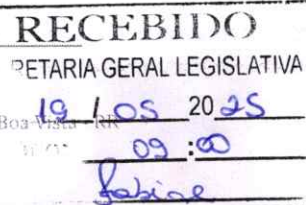 RECEBIDO
RETARIA GERAL LEGISLATIVA
19 / 05 20 25
Boa Vista - RR
09 : 00
Fabiae